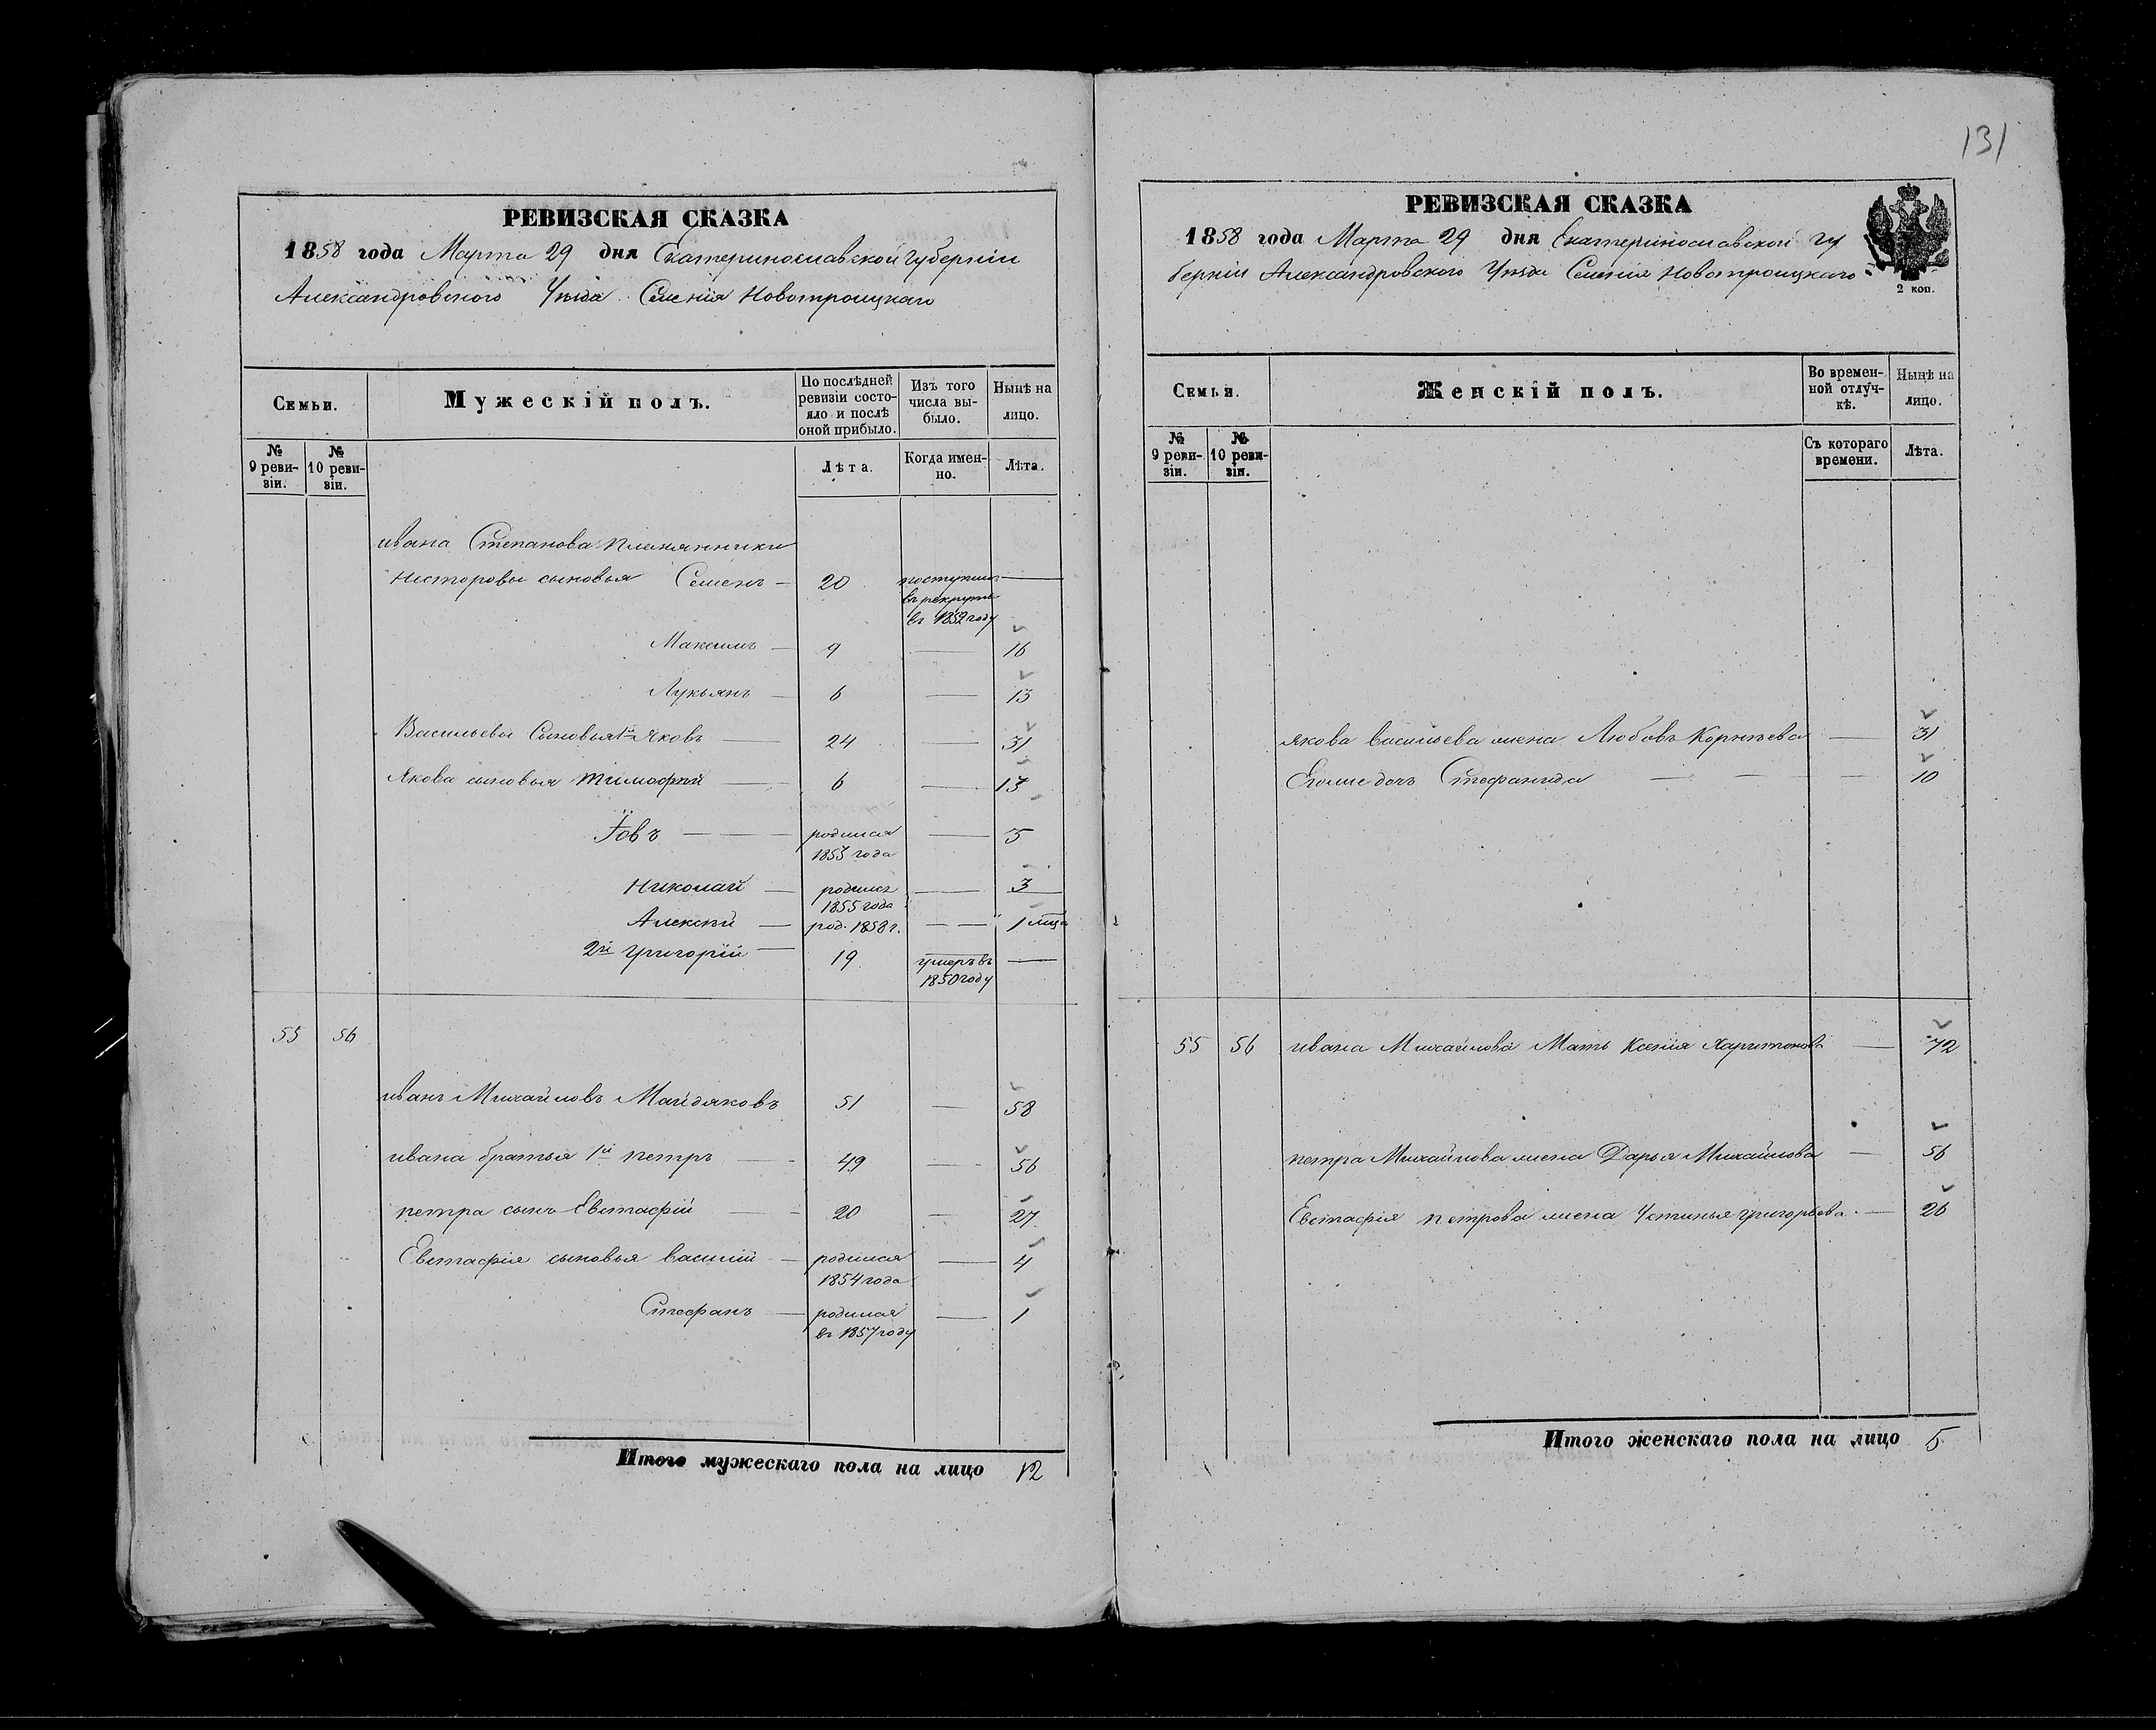 131
РЕВИЗСКАЯ СКАЗКА
1858 года Марта 29 дня Екатеринославской губерніи
Александровского Уѣзда Селенія Новотроицкаго
Семьи.
Мужескій полъ.
По послѣдней ревизіи состояло и послѣ оной прибыло.
Изъ того числа выбыло.
Нынѣ на лицо.
№ 9 ревизіи.
№ 10 ревизіи.
Лѣта.
Когда именно.
Лѣта.
ивана Степанова племянники
Несторовы сыновья Семенъ — 20 поступилъ —
въ рекруты
въ 1852 году
Максимъ — 9 — 16
Лукьянъ — 6 — 13
Васильевы Сыновья 1й Яковъ — 24 — 31
Якова сыновья Тимофѣй — 6 — 13
Їовъ — родился — 5
1853 года
Николай — родился — 3
1855 года
Алексѣй — род. 1858 г. — 1 мца
2й григорій — 19 умеръ въ —
1850 году
55 56
иванъ Михайловъ Майдяковъ 51 — 58
ивана братья 1й петръ — 49 — 56
петра сынъ Евстафій — 20 — 27
Евстафія сыновья василій — родился — 4
1854 года
Стефанъ — родился — 1
въ 1857 году
Итого мужескаго пола на лицо 12
РЕВИЗСКАЯ СКАЗКА
1858 года Марта 29 дня Екатеринославской гу
берніи Александровского Уѣзда Селенія Новотроицкаго
2 коп.
Семьи.
Женскій полъ.
Во временной отлучкѣ.
Нынѣ на лицо.
№ 9 ревизіи.
№ 10 ревизіи.
Съ котораго времени.
Лѣта.
якова васильева жена Любовь Корнѣева — 31
Егоже дочь Стефанида — 10
55 56 ивана Михайлова Мать Ксенія Харитонова — 72
петра Михайлова жена Дарья Михайлова — 56
Евстафія петрова жена Устинья григорьева — 26
Итого женскаго пола на лицо 5